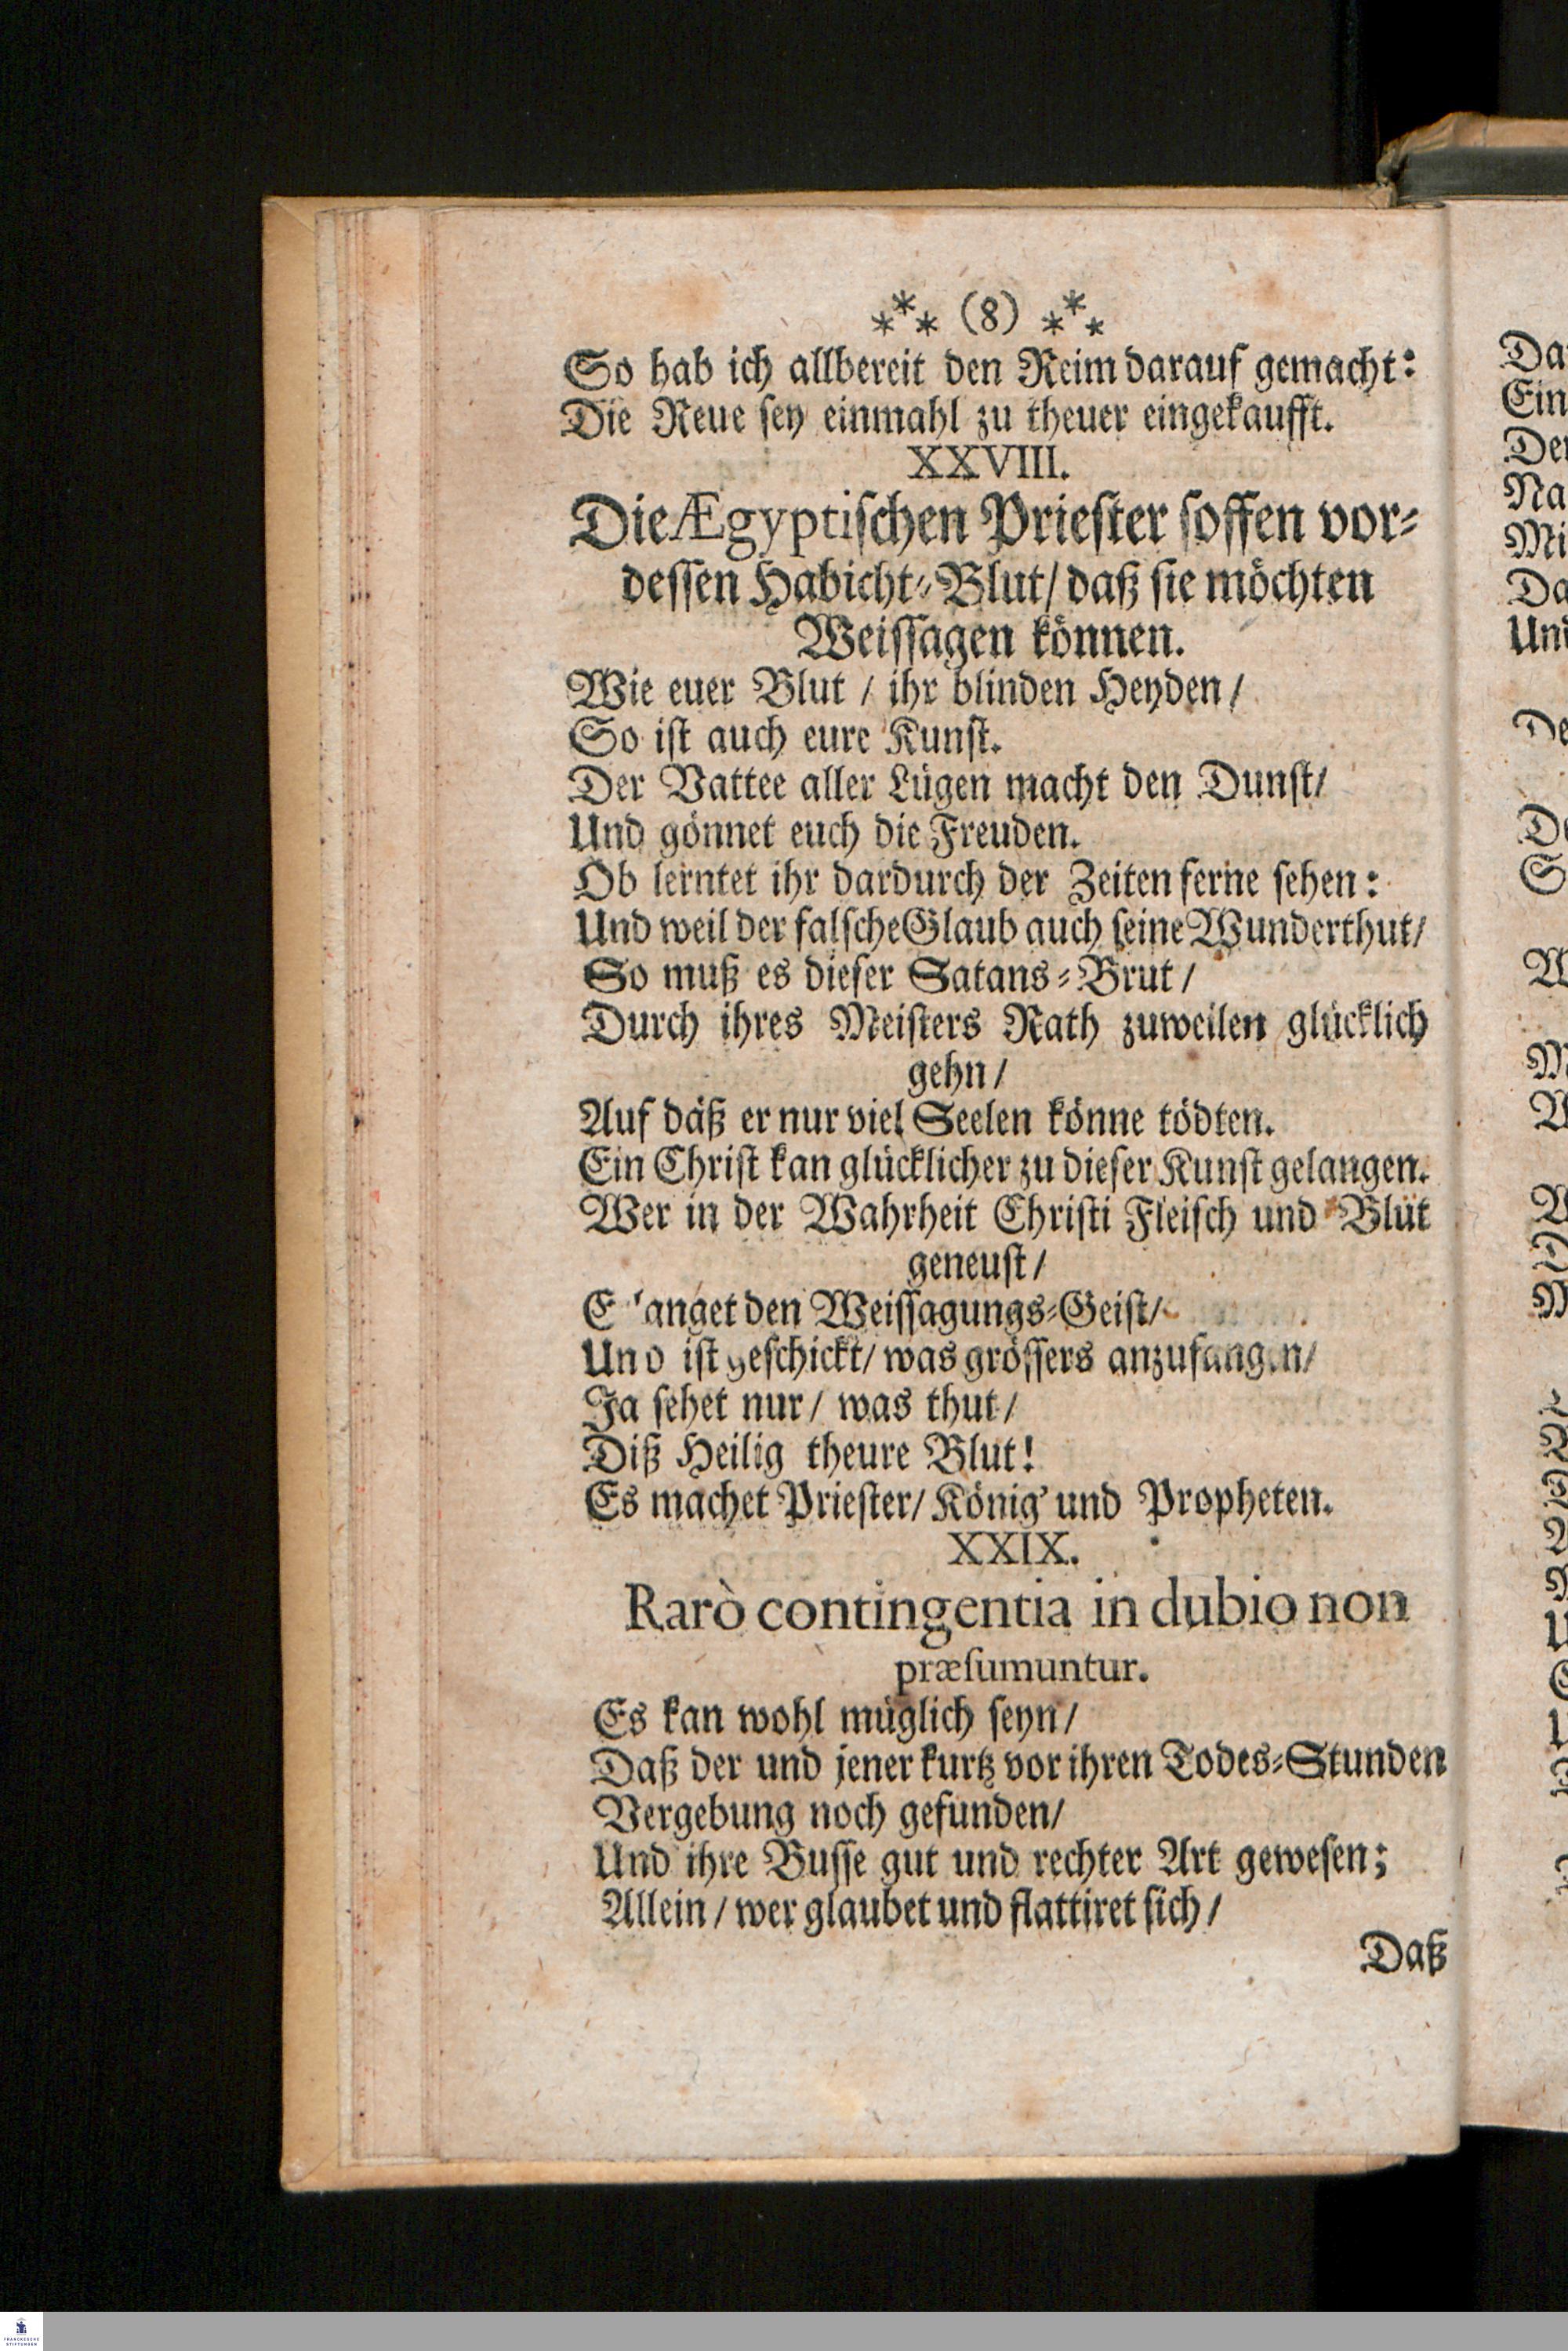 ⁎*⁎ (8) ⁎*⁎
So hab ich allbereit den Reim darauf gemacht:
Die Reue sey einmahl zu theuer eingekaufft.
XXVIII.
Die Ægyptischen Priester soffen vor-
dessen Habicht-Blut/ daß sie möchten
Weissagen können.
Wie euer Blut / ihr blinden Heyden /
So ist auch eure Kunst.
Der Vattee aller Lügen macht den Dunst/
Und gönnet euch die Freuden.
Ob lerntet ihr dardurch der Zeiten ferne sehen:
Und weil der falsche Glaub auch seine Wunder thut/
So muß es dieser Satans-Brut /
Durch ihres Meisters Rath zuweilen glücklich
gehn /
Auf daß er nur viel Seelen könne tödten.
Ein Christ kan glücklicher zu dieser Kunst gelangen.
Wer in der Wahrheit Christi Fleisch und Blut
geneust /
den Weissagungs-Geist/
Und ist geschickt/ was grössers anzufangen/
Ja sehet nur / was thut /
Diß Heilig theure Blut!
Es machet Priester/ König' und Propheten.
XXIX.
Rarò contingentia in dubio non
præsumuntur.
Es kan wohl müglich seyn /
Daß der und jener kurtz vor ihren Todes-Stunden
Vergebung noch gefunden/
Und ihre Busse gut und rechter Art gewesen;
Allein / wer glaubet und flattiret sich /
Daß
FRANCKESCHE
STIFTUNGEN